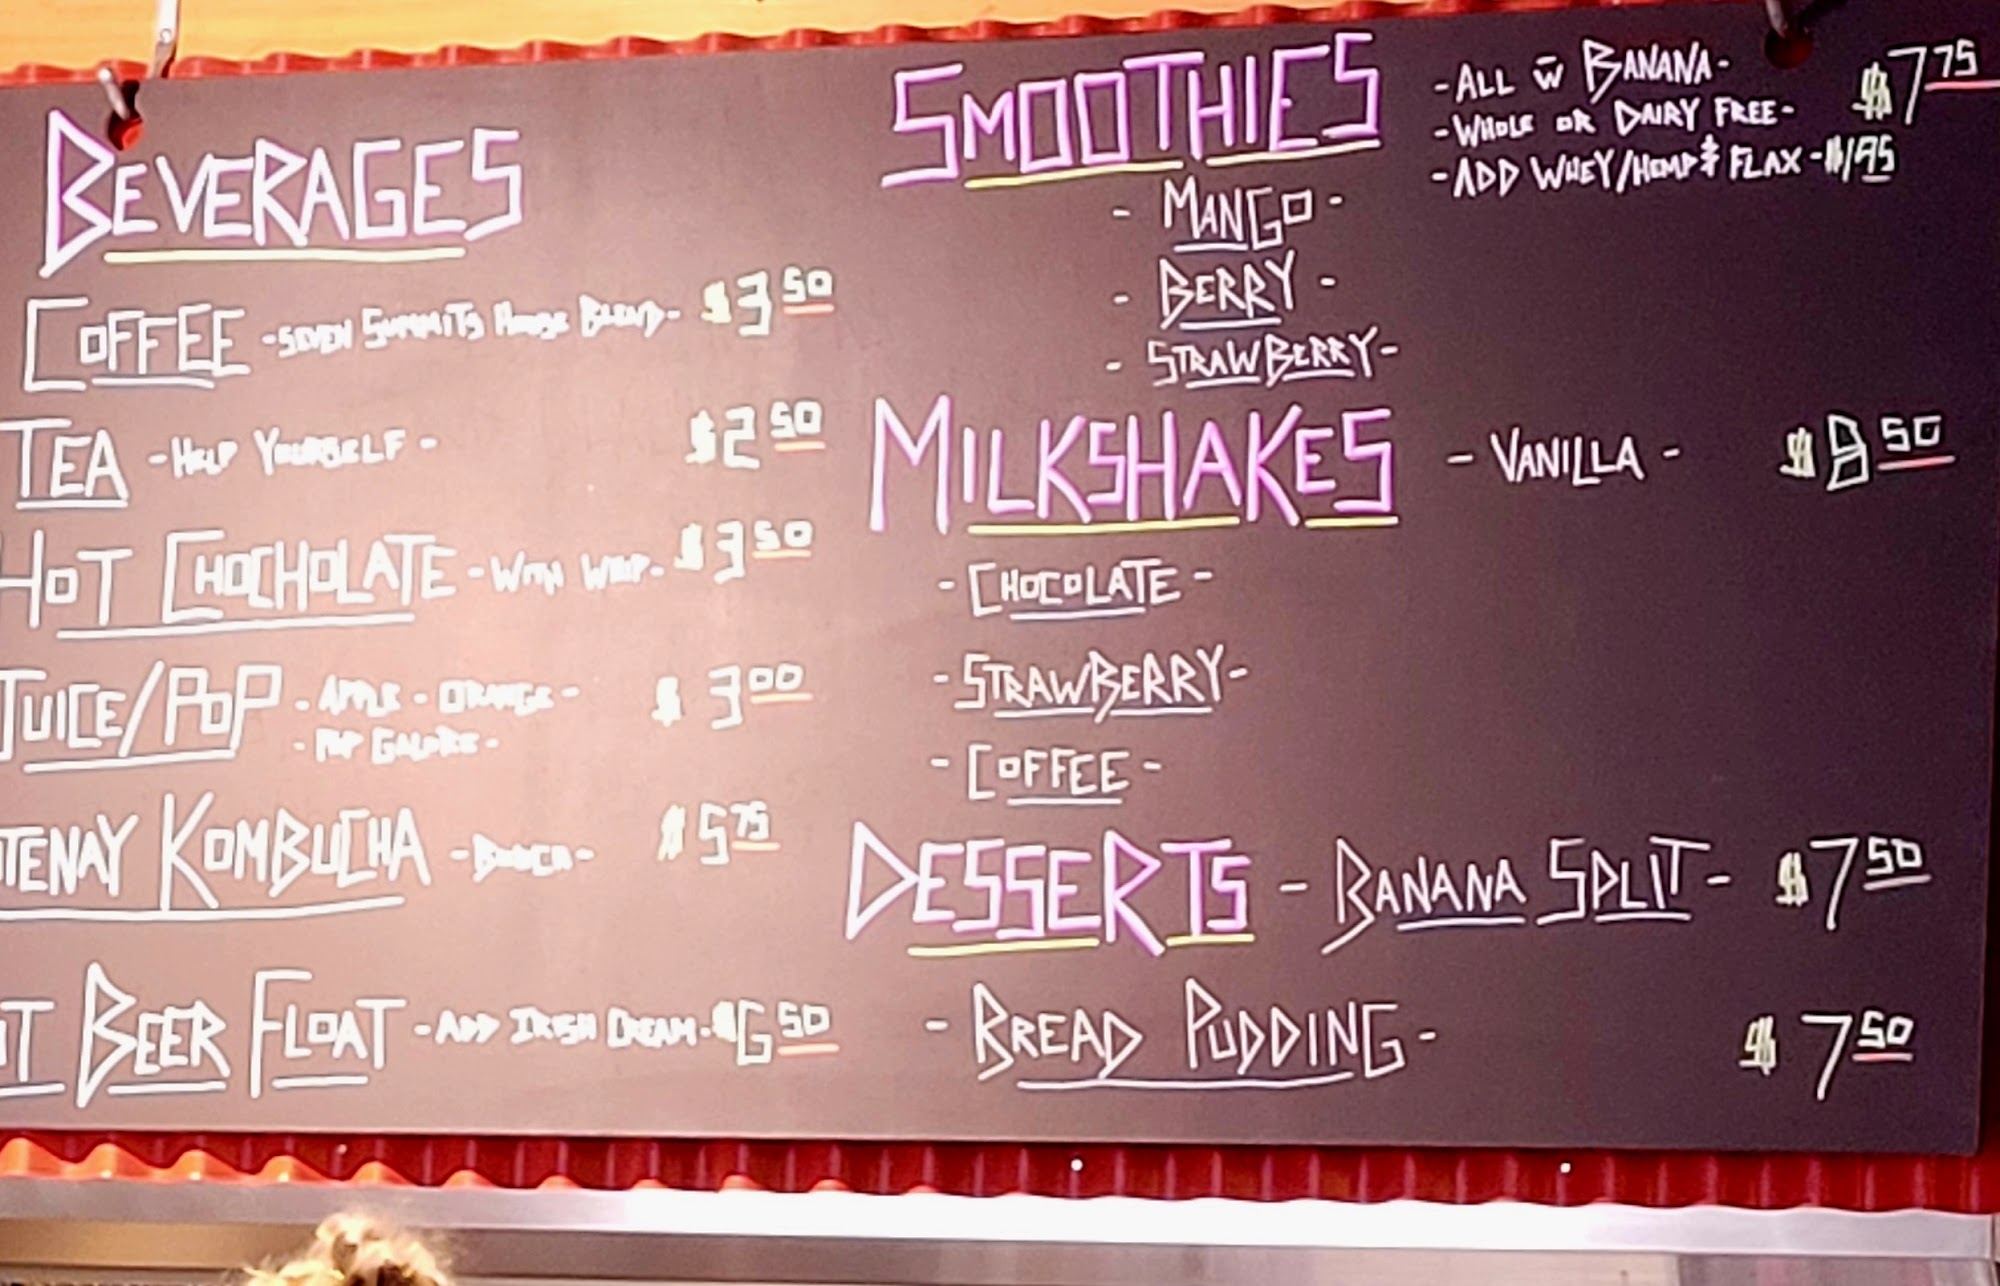 BEVERAGES
COFFEE - SEVEN SUMMITS HOUSE BLEND - $3.50
TEA - HELP YOURSELF - $2.50
HOT CHOCHOLATE - WITH WHIP - $3.50
JUICE/POP - APPLE - ORANGE - $3.00
- POP GALORE -
TENAY KOMBUCHA - BOOCH - $5.75
T BEER FLOAT - ADD IRISH CREAM - $6.50
SMOOTHIES - ALL W BANANA - $7.75
- WHOLE OR DAIRY FREE -
- ADD WHEY/HEMP & FLAX - $1.95
- MANGO -
- BERRY -
- STRAWBERRY -
MILKSHAKES - VANILLA - $8.50
- CHOCOLATE -
- STRAWBERRY -
- COFFEE -
DESSERTS - BANANA SPLIT - $7.50
- BREAD PUDDING - $7.50